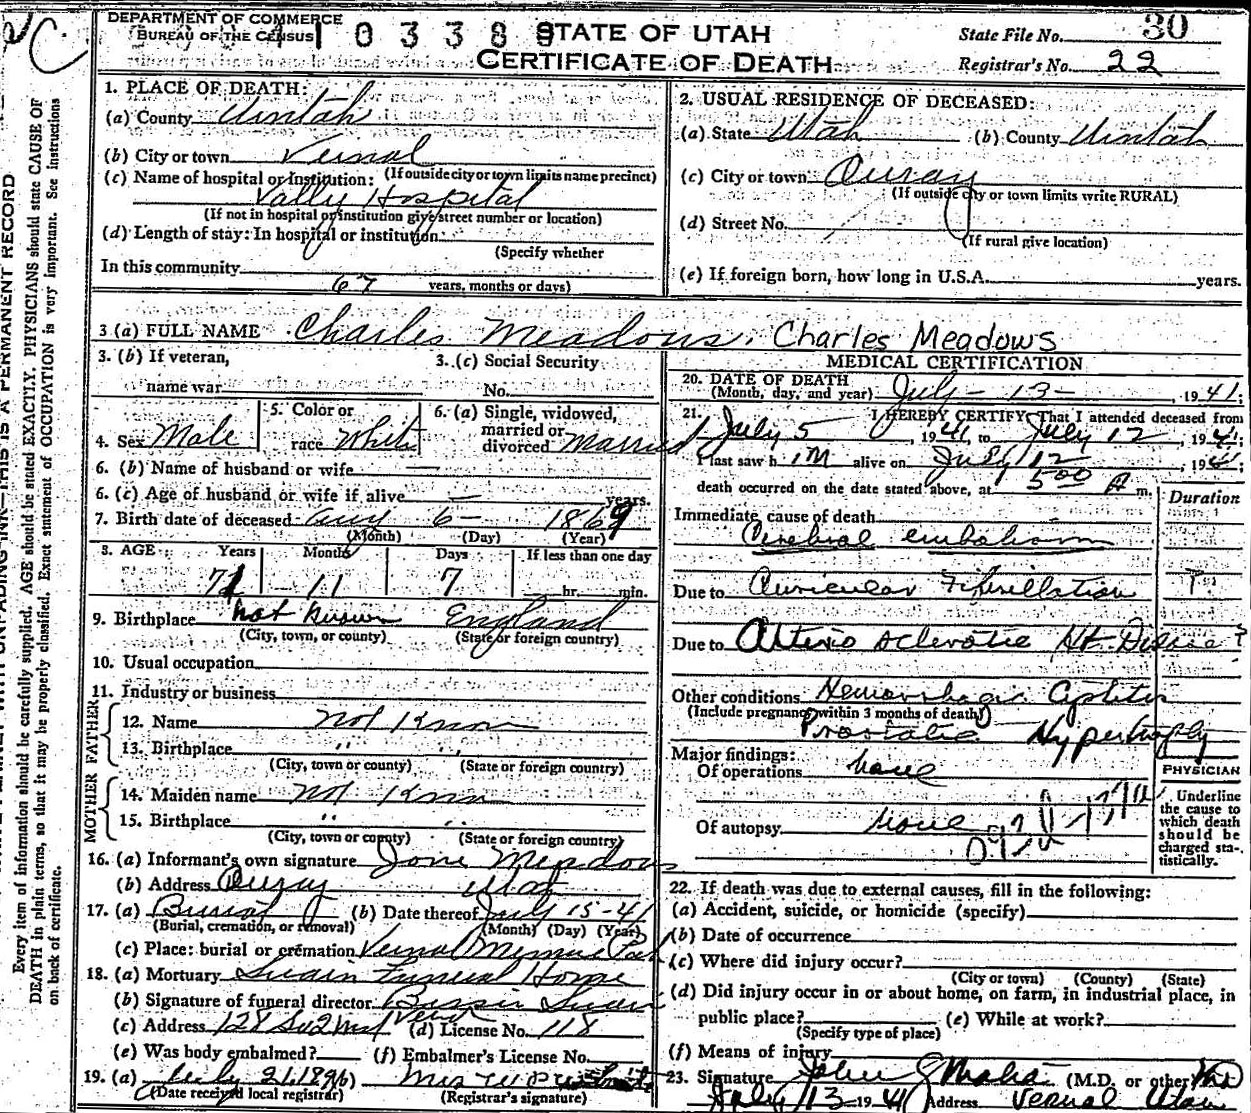 DEPARTMENT OF COMMERCE
BUREAU OF THE CENSUS
1 0 3 3 8 9
STATE OF UTAH
CERTIFICATE OF DEATH
State File No. 30
Registrar's No. 22
1. PLACE OF DEATH:
(a) County Uintah
(b) City or town Vernal
(If outside city or town limits name precinct)
(c) Name of hospital or Institution:
Vally Hospital
(If not in hospital or institution give street number or location)
(d) Length of stay: In hospital or institution
(Specify whether
In this community 67
years, months or days)
2. USUAL RESIDENCE OF DECEASED:
(a) State Utah (b) County Uintah
(c) City or town Ouray
(If outside city or town limits write RURAL)
(d) Street No.
(If rural give location)
(e) If foreign born, how long in U.S.A. years.
3 (a) FULL NAME Charles Meadows. Charles Meadows
3. (b) If veteran, name war
3. (c) Social Security No.
4. Sex Male
5. Color or race White
6. (a) Single, widowed, married or divorced Married
6. (b) Name of husband or wife —
6. (c) Age of husband or wife if alive — years.
7. Birth date of deceased Aug 6 - 1869
(Month) (Day) (Year)
8. AGE Years Months Days If less than one day
71 11 7 hr. min.
9. Birthplace Not Known England
(City, town, or county) (State or foreign country)
10. Usual occupation
11. Industry or business
FATHER
12. Name Not Know
13. Birthplace " "
(City, town or county) (State or foreign country)
MOTHER
14. Maiden name Not Know
15. Birthplace " "
(City, town or county) (State or foreign country)
16. (a) Informant's own signature Meadows
(b) Address Ouray Utah
17. (a) Burial (b) Date thereof July 15-41
(Burial, cremation, or removal) (Month) (Day) (Year)
(c) Place: burial or cremation Vernal Park
18. (a) Mortuary Swain Funeral Home
(b) Signature of funeral director Swain
(c) Address 128 So 2nd Vernal (d) License No. 118
(e) Was body embalmed? (f) Embalmer's License No.
19. (a) July 21, 18 (b) Mrs
(Date received local registrar) (Registrar's signature)
MEDICAL CERTIFICATION
20. DATE OF DEATH
(Month, day, and year) July - 13 - , 1941;
21. I HEREBY CERTIFY, That I attended deceased from
July 5, 1941, to July 12, 1941;
I last saw h im alive on July 12, 1941;
death occurred on the date stated above, at 5:00 A m.
Duration
Immediate cause of death
Cerebral embolism
Due to Auricular Fibrillation ?
Due to Arterio sclerotic Ht. Disease ?
Other conditions Hemorrhagic Cystitis
(Include pregnancy within 3 months of death)
Prostatic Hypertrophy
Major findings:
Of operations none
Of autopsy none
PHYSICIAN
Underline the cause to which death should be charged statistically.
22. If death was due to external causes, fill in the following:
(a) Accident, suicide, or homicide (specify)
(b) Date of occurrence
(c) Where did injury occur?
(City or town) (County) (State)
(d) Did injury occur in or about home, on farm, in industrial place, in
public place? (e) While at work?
(Specify type of place)
(f) Means of injury
23. Signature John (M.D. or other) MD
July 13 1941 Address Vernal Utah
THIS IS A PERMANENT RECORD
Every item of information should be carefully supplied. AGE should be stated EXACTLY. PHYSICIANS should state CAUSE OF
DEATH in plain terms, so that it may be properly classified. Exact statement of OCCUPATION is very important. See instructions
on back of certificate.